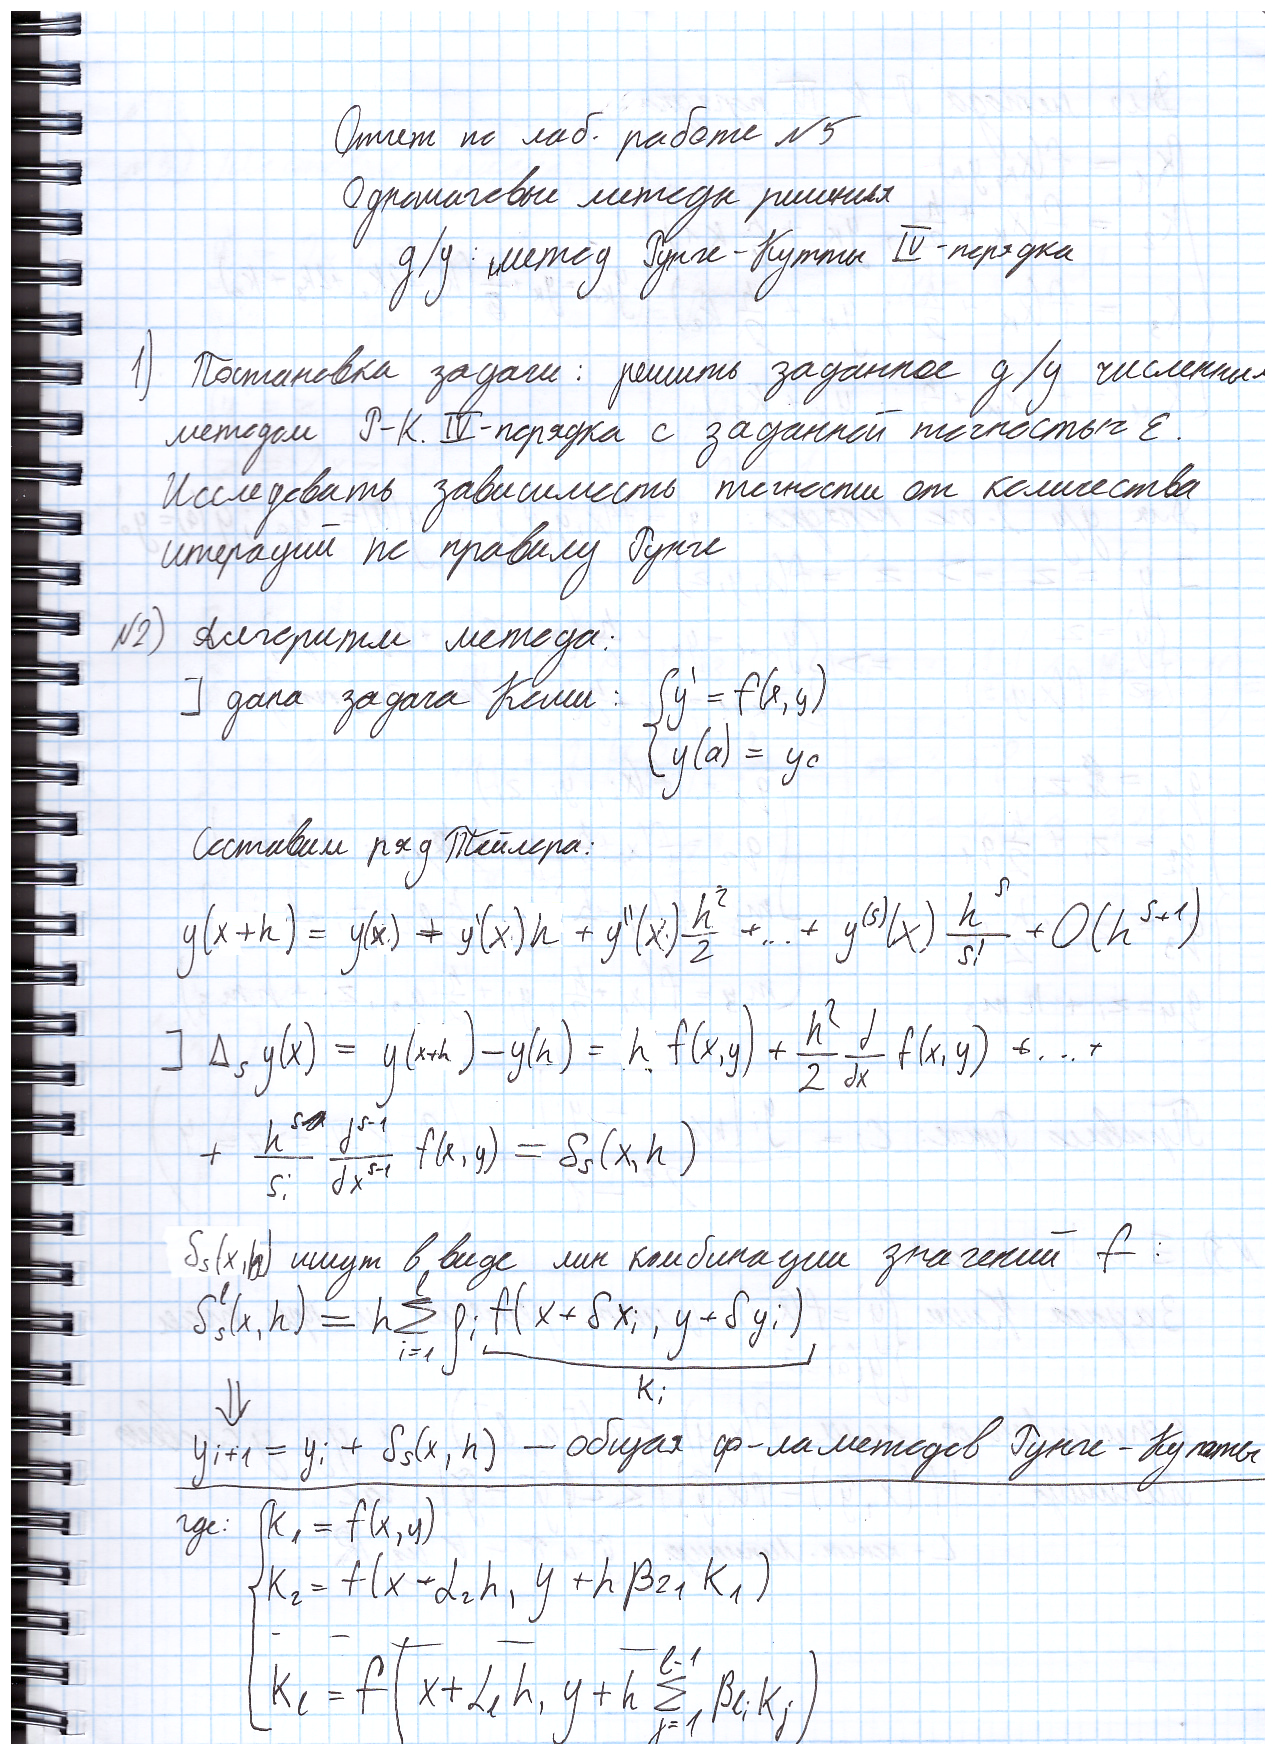 Отчет по лаб. работе №5
Одношаговые методы решения
д/у: метод Рунге-Кутты IV-порядка
1) Постановка задачи: решить заданное д/у численным
методом Р-К. IV-порядка с заданной точностью ε.
Исследовать зависимость точности от количества
итераций по правилу Рунге
№2) Алгоритм метода:
] дана задача Коши: { y' = f(x,y)
y(a) = y₀
Составим ряд Тейлора:
y(x+h) = y(x) + y'(x)h + y''(x) h²/2 + ... + y⁽ˢ⁾(x) hˢ/s! + O(hˢ⁺¹)
] Δₛ y(x) = y(x+h) − y(h) = h f(x,y) + h²/2 d/dx f(x,y) + ... +
+ hˢ/s! dˢ⁻¹/dxˢ⁻¹ f(x,y) = δₛ(x,h)
δₛ(x,h) ищут в виде лин комбинации значений f :
δₛˡ(x,h) = h Σᵢ₌₁ˡ ρᵢ f(x+δxᵢ, y+δyᵢ)
Kᵢ
⇓
yᵢ₊₁ = yᵢ + δₛ(x,h) — общая ф-ла методов Рунге-Кутты
где: { K₁ = f(x,y)
K₂ = f(x+α₂h, y+hβ₂₁K₁)
- - - - -
Kₗ = f(x+αₗh, y+h Σⱼ₌₁ˡ⁻¹ βₗⱼKⱼ)